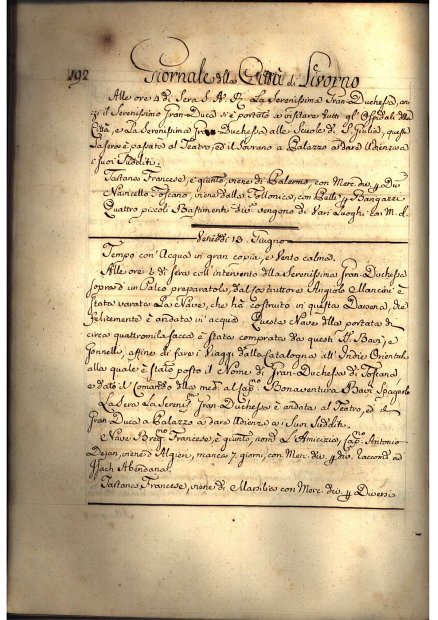 192 Giornale della Città di Livorno
Alle ore 4 di Sera S. A. R. La Serenissima Gran Duchessa, an-
zi il Serenissimo Gran Duca s'è portato a visitare tutti gl'Ospedali della
Città, e La Serenissima Gran Duchessa alle Scuole di S. Giulia, questa
La sera è passata al Teatro, ed il Sovrano a Palazzo a dare Udienza a
i suoi Sudditi.
Tartana Francese, è giunto, viene di Palermo, con Merc. div. p. Div.
Navicello Toscano, viene dalla Follonica, con Pelli, p.
Quattro piccoli Bastimenti div. vengono di vari Luoghi con M. d.
Venerdì 13 Giugno
Tempo con Acqua in gran copia, e Vento calma.
Alle ore 6 di sera coll'intervento della Serenissima Gran Duchessa
sopra di un Palco preparatole, dal Costruttore Angiolo Mancini è
stata varata La Nave, che ha costruito in questa Darsena, che
felicemente è andata in acqua. Questa Nave della portata di
circa quattromila sacca è stata comprata da questi SS. Bavi, e
Gonnella, affine di fare i Viaggi dalla Catalogna all'Indie Orientali,
alla quale è stato posto il Nome di Gran Duchessa di Toscana
e dato il Comando della med. al Cap.no Bonaventura Bavi Spagnolo
La Sera La Sereniss.ma Gran Duchessa è andata al Teatro, ed il
Gran Duca a Palazzo a dare Udienza a Suoi Sudditi.
Nave Francese, è giunto, nom. L'Amicizia, Cap.no Antonio
Dejan, viene d'Algieri, manca 7 giorni, con Merc. div. p. div. raccom. ad
Isach Abendana.
Tartana Francese, viene di Marsilia con Merc. div. p. Diversi